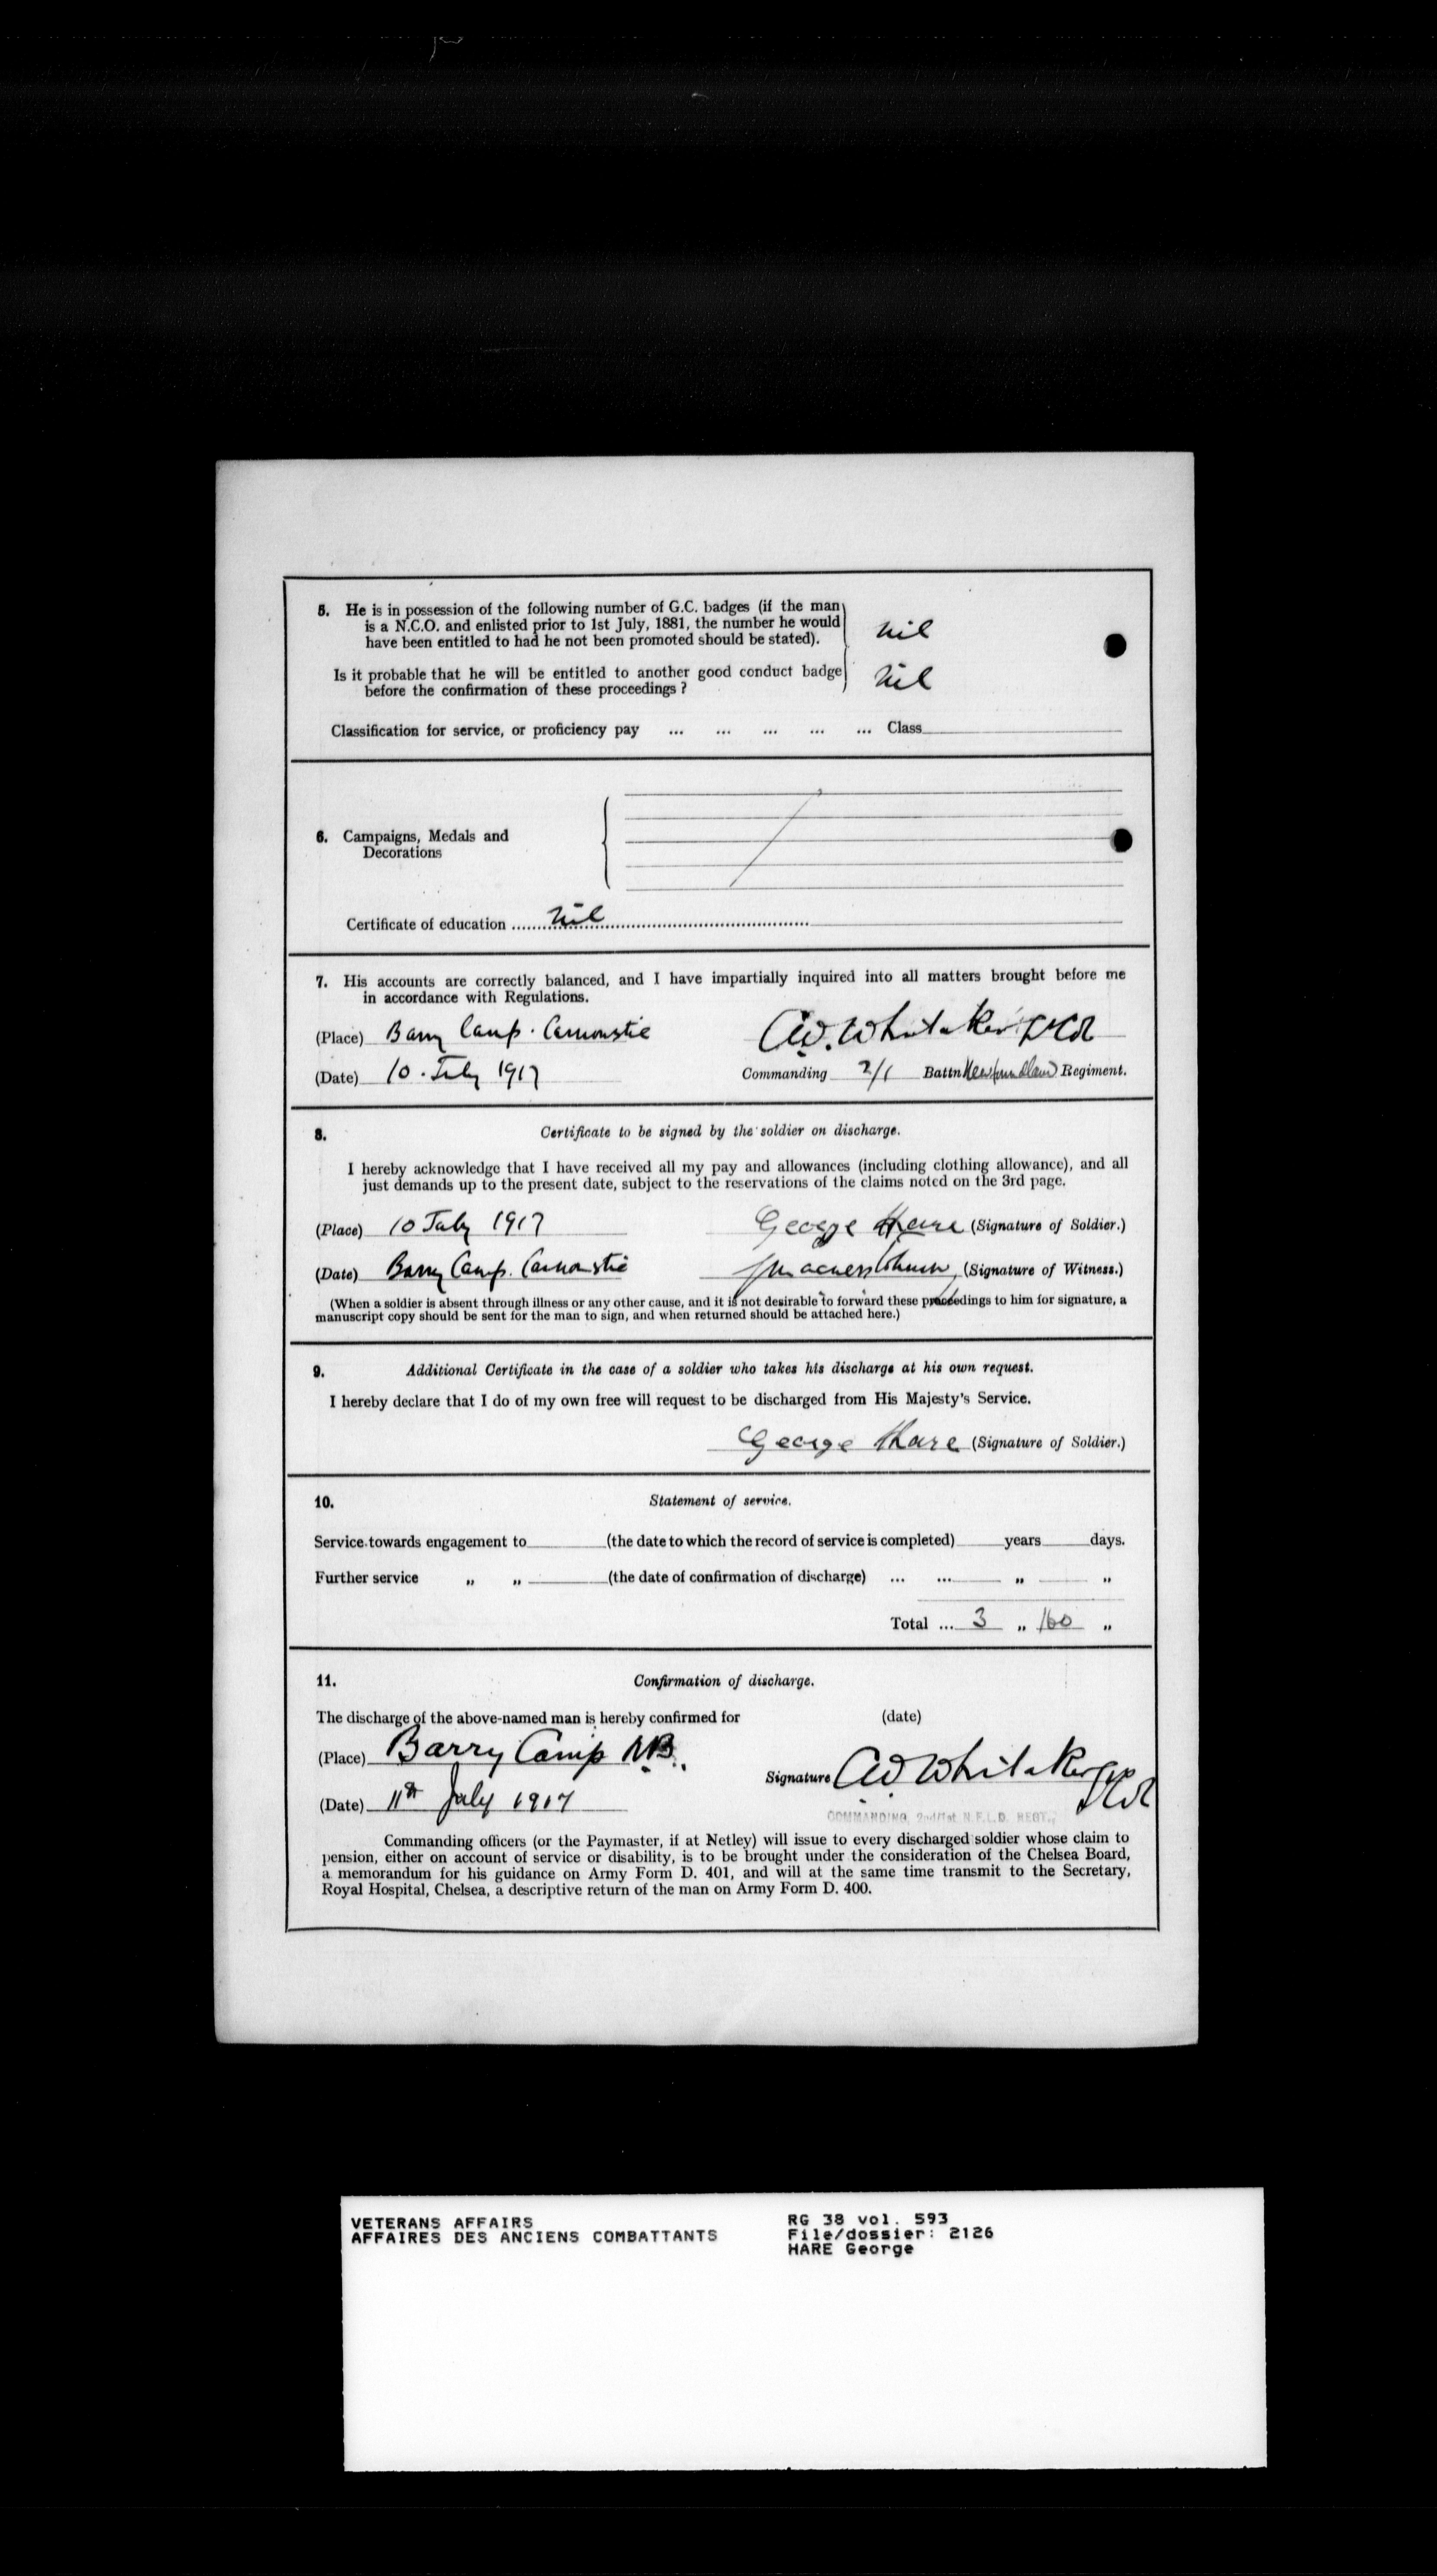 5. He is in possession of the following number of G.C. badges (if the man
is a N.C.O. and enlisted prior to 1st July, 1881, the number he would
have been entitled to had he not been promoted should be stated). nil
Is it probable that he will be entitled to another good conduct badge
before the confirmation of these proceedings ? nil
Classification for service, or proficiency pay ... ... ... ... ... Class
6. Campaigns, Medals and
Decorations
Certificate of education ...... nil
7. His accounts are correctly balanced, and I have impartially inquired into all matters brought before me
in accordance with Regulations.
(Place) Barry Camp. Carnoustie A.W. Whitaker
(Date) 10. July 1917 Commanding 2/1 Battn Newfoundland Regiment.
8. Certificate to be signed by the soldier on discharge.
I hereby acknowledge that I have received all my pay and allowances (including clothing allowance), and all
just demands up to the present date, subject to the reservations of the claims noted on the 3rd page.
(Place) 10 July 1917 George Hare (Signature of Soldier.)
(Date) Barry Camp. Carnoustie (Signature of Witness.)
(When a soldier is absent through illness or any other cause, and it is not desirable to forward these proceedings to him for signature, a
manuscript copy should be sent for the man to sign, and when returned should be attached here.)
9. Additional Certificate in the case of a soldier who takes his discharge at his own request.
I hereby declare that I do of my own free will request to be discharged from His Majesty's Service.
George Hare (Signature of Soldier.)
10. Statement of service.
Service towards engagement to (the date to which the record of service is completed) years days.
Further service „ „ (the date of confirmation of discharge) ... ... „ „
Total ... 3 „ 160 „
11. Confirmation of discharge.
The discharge of the above-named man is hereby confirmed for (date)
(Place) Barry Camp N.B. Signature AW Whitaker
(Date) 11th July 1917 COMMANDING, 2nd/1st N.F.L.D. REGT.,
Commanding officers (or the Paymaster, if at Netley) will issue to every discharged soldier whose claim to
pension, either on account of service or disability, is to be brought under the consideration of the Chelsea Board,
a memorandum for his guidance on Army Form D. 401, and will at the same time transmit to the Secretary,
Royal Hospital, Chelsea, a descriptive return of the man on Army Form D. 400.
VETERANS AFFAIRS RG 38 vol. 593
AFFAIRES DES ANCIENS COMBATTANTS File/dossier: 2126
HARE George